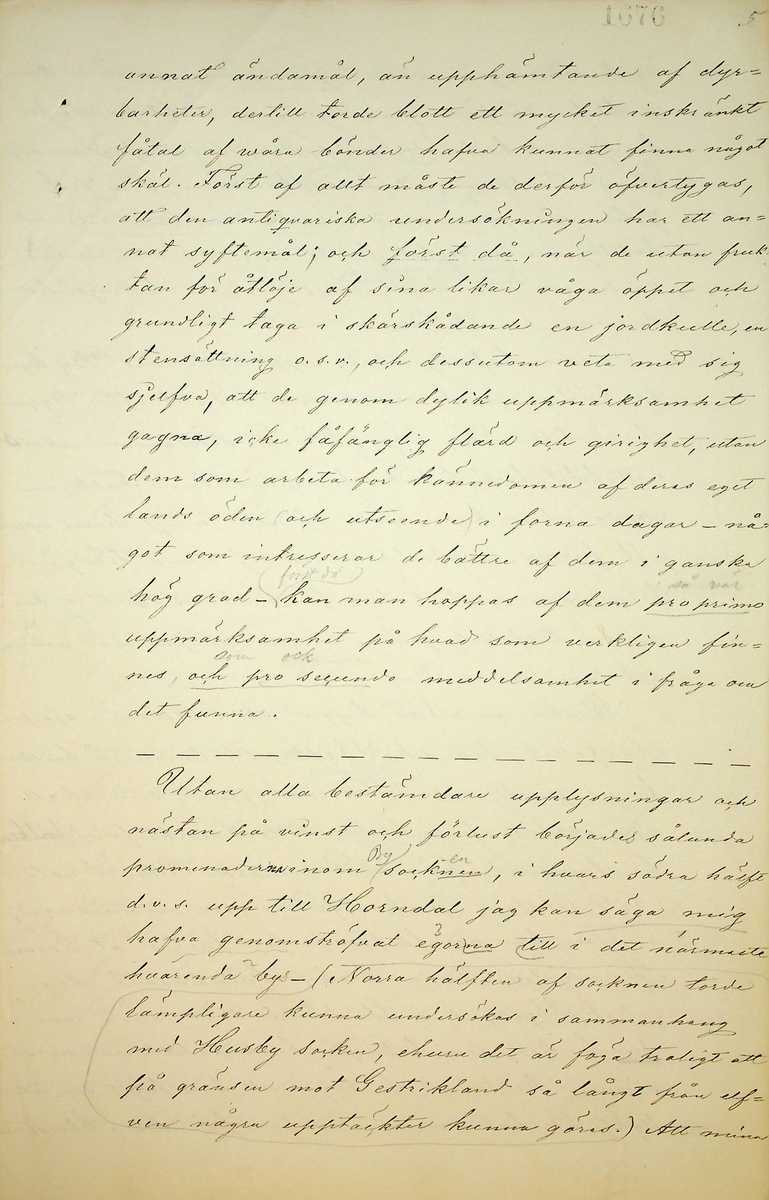 1676 5
annat ändamål, än upphämtande af dyr=
barheter, dertill torde blott ett mycket inskränkt
fåtal af våra bönder hafva kunnat finna något
skäl. Först af allt måste de derför öfvertygas,
att den antiqvariska undersökningen har ett an=
nat syftemål; och först då, när de utan fruk-
tan för åtlöje af sina likar våga öppet och
grundligt taga i skärskådande en jordkulle, en
stensättning o.s.v., och dessutom veta med sig
sjelfva, att de genom dylik uppmärksamhet
gagna, icke fåfänglig flärd och girighet, utan
dem som arbeta för kännedomen af deras eget
lands öden (och utseende) i forna dagar – nå=
got som intresserar de bättre af dem i ganska
först då så väl
hög grad – kan man hoppas af dem pro primo
uppmärksamhet på hvad som verkligen fin=
som ock
nes, och pro secundo meddelsamhet i fråga om
det funna.
Utan alla bestämdare upplysningar och
nästan på vinst och förlust börjades sålunda
By en
promenaderna inom socknen, i hvars södra hälft
d.v.s. upp till Horndal jag kan säga mig
hafva genomströfvat egorna till i det närmaste
hvarenda by – (Norra hälften af socknen torde
lämpligare kunna undersökas i sammanhang
med Husby socken, ehuru det är föga troligt att
på gränsen mot Gestrikland så långt från elf=
ven några upptäckter kunna göras.) Att mina